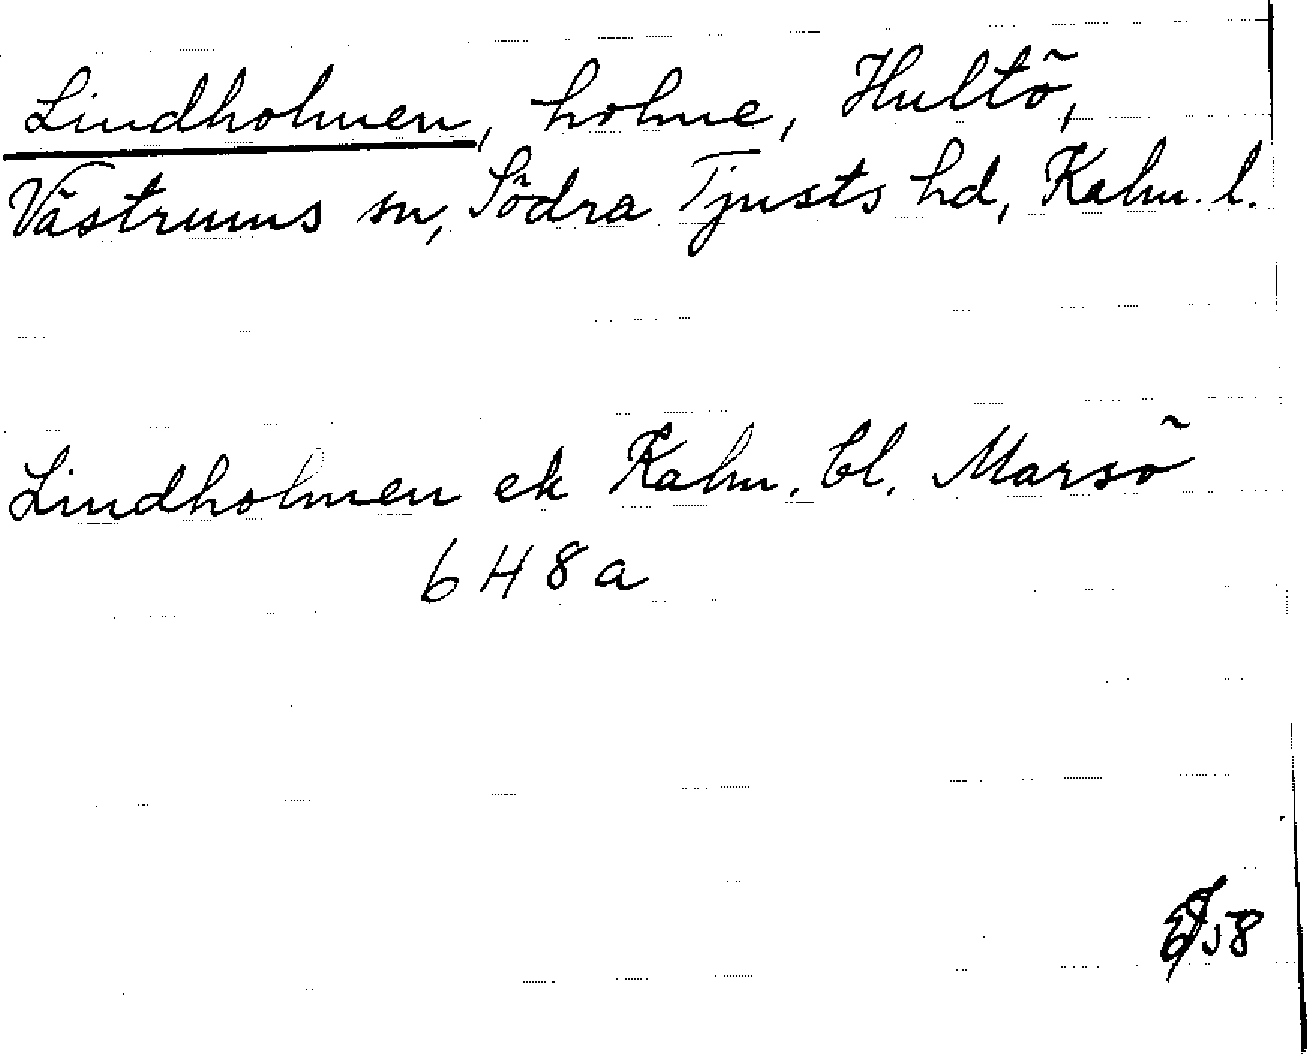 Lindholmen, holme, Hultö,
Västrums sn, Södra Tjusts hd, Kalm. l.
Lindholmen ek Kalm. bl. Marsö
6H8a
58